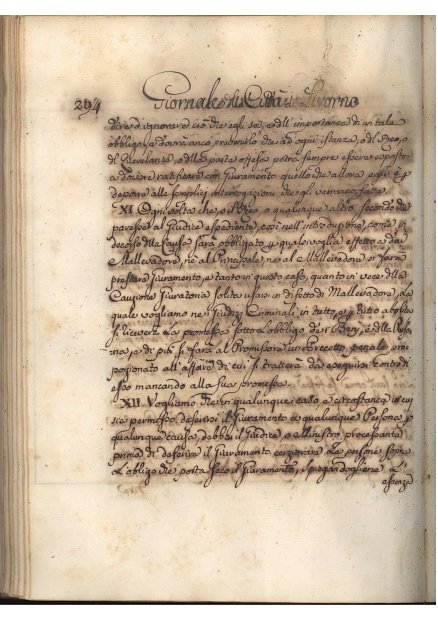 294 Giornale della Città di Livorno
dire d'ignorare ciò che egli sa, e dell'importanza di un tale
obbligo, e dovrà anco prevenirlo che ad ogni istanza, o del Reo, o
del Querelante, o della parte offesa potrà sempre essere
a dovere ratificare con Giuramento quello che allora egli
deporre alle semplici interrogazioni che gli verranno fatte.
XI. Ogni volta che, o il Reo, o qualunque altro secondo che
paresse al Giudice espediente, così nell'introduzione, come in
decorso della Causa sarà obbligato per qualsivoglia effetto a dare
Mallevadore, nè al Principale, nè al Mallevadore si farà
prestare Giuramento, e tanto in questo caso, quanto in vece della
Cauzione Giuratoria solita usarsi in difetto di Mallevadore, la
quale vogliamo ne i Giudizj Criminali in tutto, e per tutto abolita
si riceverà la promessa sotto l'obbligo de i Beni, e della Perso,
na, e di più si farà al Promissore un Precetto penale pro,
porzionato all'affare di cui si tratterà da eseguirsi contro di
esso mancando alla sua promessa.
XII. Vogliamo che in qualunque caso, o circostanza in cui
sia permesso deferire il Giuramento a qualunque Persona per
qualunque causa, debba il Giudice, o Ministro processante
prima di deferire il Giuramento le persone sopra
l'obbligo che porta seco il Giuramento, spiegandogliene l'